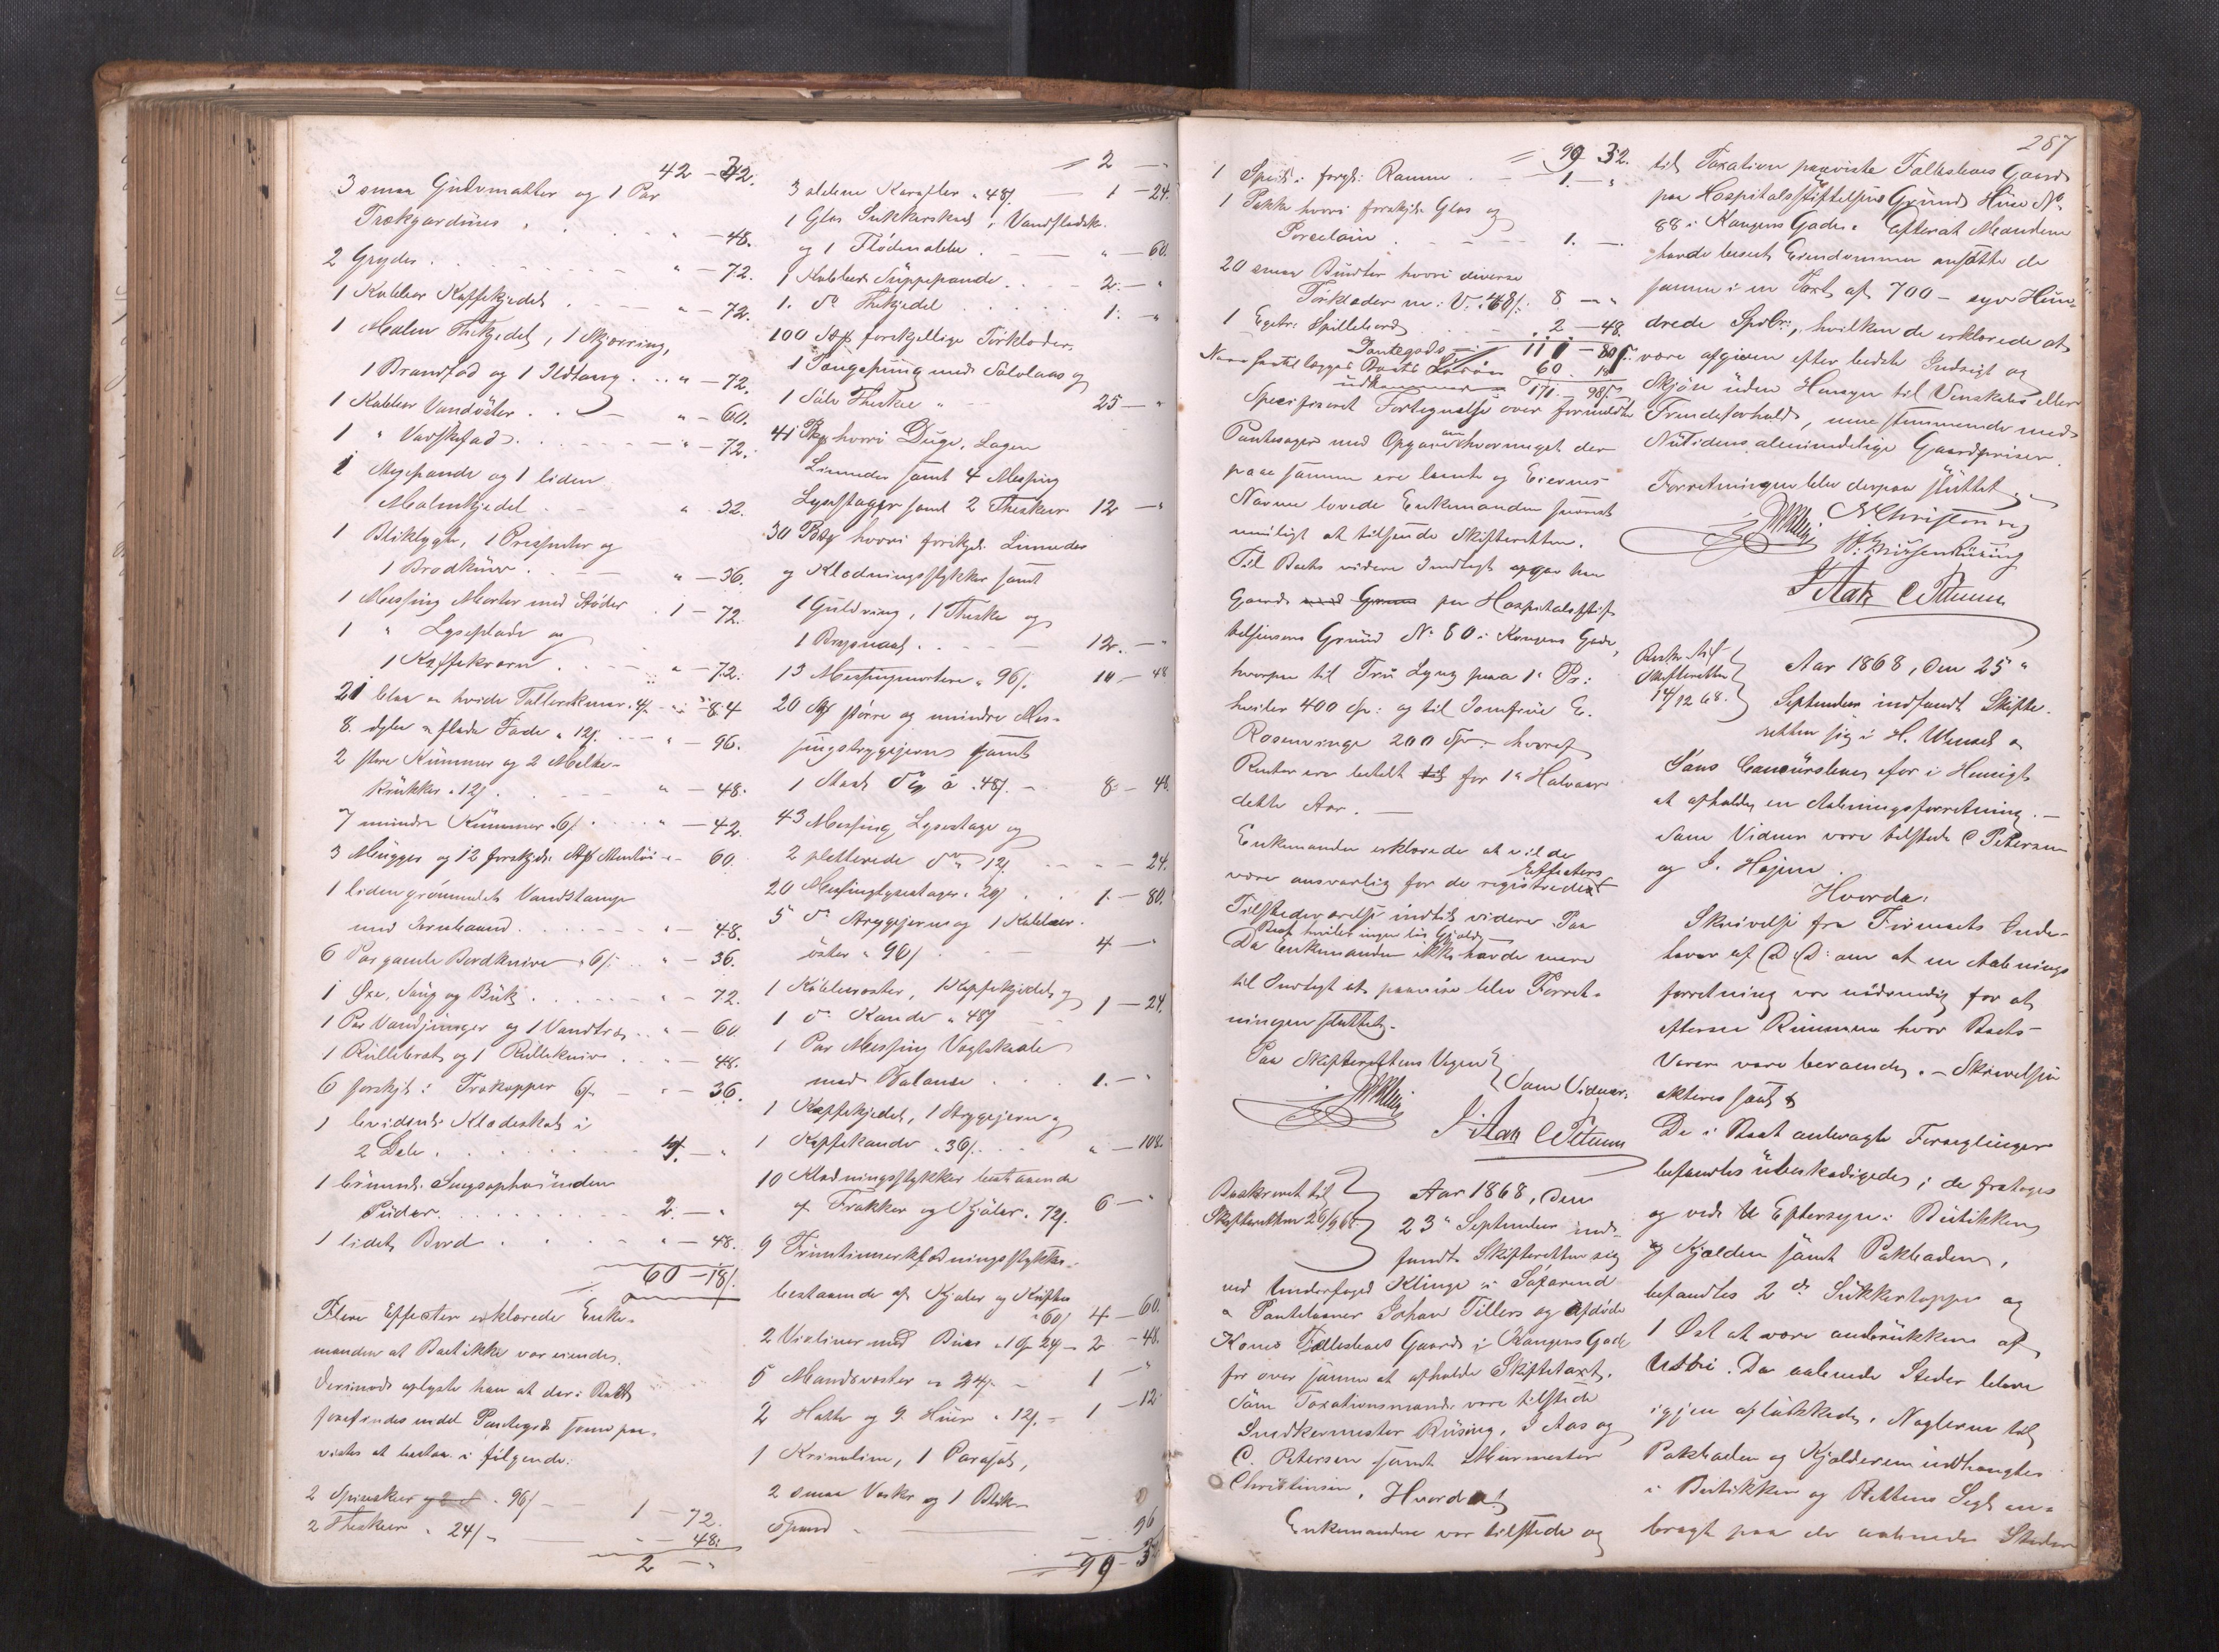 42 – 42.
3 smaa Gulvmatter og 1 Par
Trækgardiner . . . " – 48.
2 Gryder . . . " – 72.
1 Kobber Kaffekjedel . . " – 72.
1 Malm Thekjedel, 1 Skjærring,
1 Brandfad og 1 Ildtang . . " – 72.
1 Kobber Vandøster . . " – 60.
1 " Vaskefad . . . " – 72.
1 Mypande og 1 liden
Malmkjedel . . " 32.
1 Bliklygte, 1 Presenter og
1 Brødkurv . . " – 36.
1 Messing Morter med Støder . 1 – 72.
1 " Lyseplade og
1 Kaffekværn . . . " – 72.
21 blaa og hvide Tallerkener 4/ – " – 84
8 dybe og flade Fade a 12/. . . " – 96.
2 store Kummer og 2 Melke-
krukker a 12/. . . " – 48.
7 mindre Kummer a 6/ . . . " – 42.
3 Mugger og 12 forskjel: St 60.
1 liden grønmalet Vandstampe
med Jernbaand . . . " – 48.
6 Par gamle Bordknive a 6/ . . " – 36.
1 Øxe, Saug og Buk . . . " – 72.
1 Par Vandringer og 1 Vandtræ . . " – 60
1 Rullebræt og 1 Rullekniv . . " – 48.
6 forskjl: Trækopper 6/ – " – 36.
1 hvidmt. Klædeskab i
2 Dele . . . 4. – "
1 brunmt. Sengeophvænden
Puder . . . 2. – "
1 lidet Bord . . . " – 48.
60 – 18/.
Flere Effecter erklærede Enke-
manden at Boet ikke var eiendes.
Derimod oplyste han at der i Boet
forefindes endel Pantegods som paa-
vistes at bestaa i følgende:
2 Spiseskeer a 96/ – 1 – 72.
2 Theskeer a 24/ – – 48.
2 – "
= 2 – "
3 slebne Karafler a 48/. – 1 – 24.
1 Glas Sukkerskaal, 1 Vandflaske
og 1 Flødemukke . – " – 60.
1 Kobber Suppepande . . . 2. – "
1. do Thekjedel . . . 1. – "
100 Stk forskjellige Tørklæder,
1 Pengepung med Sølvlaas og
1 Sølv Theskee " 25 – "
41 Pkr hvori Duge, Lagen
Linneder samt 4 Messing
Lysestager samt 2 Theskeer 12 – "
30 Pkr hvori forskjl. Linneder
og Klædningsstykker samt
1 Guldring, 1 Theske og
1 Brystnaal . . . 12. – "
13 Messingmortere a 96/. 10 – 48
20 Stk større og mindre Mes-
singstrygejern samt
1 Staal do a 48/. – 8 – 48.
43 Messing Lysestager og
2 pletterede do 12/. – – 24.
20 Messinglysestager a 20/ . . 1. – 80.
5 do Strygejern og 1 Kobber-
øster a 96/ . . 4 – "
1 Kobberøster, 1 Kaffekjedel og
1 do Kande a 48/ 1 – 24.
1 Par Messing Vægtskaale
med Balance . . . 1. – "
1 Kaffekjedel, 1 Strygejern og
1 Kaffekande a 36/. . . " – 108.
10 Klædningsstykker bestaaende
af Frakker og Kjoler a 72/. 6 – "
9 Fruentimmerklædningsstykker
bestaaende af Kjoler og Kofter
a 60/ 4 – 60.
2 Violiner med Buer a 1 24 – 2 – 48.
5 Mandsveste a 24/ – 1 – "
2 Hatte og 9 Huer a 12/. – 1 – 12
1 Krinoline, 1 Parasol,
2 smaa Vaske og 1 Blik-
spand – 96
99 – 32
287
= 99 32.
1 Speil i forgt. Ramme . – 1. – "
1 Pakke hvori forskjl. Glas og
Porcelain . – – – 1. –
20 smaa Bundter hvori diverse
Tørklæder m: V: a 48/: 8 – "
1 Egetr: Spillebord . . . 2 – 48.
Pantegods – 111 – 80/.
60 18
udkommer 171. 98/.
Specificeret Fortegnelse over formeldte
Pantesager med Opgave om hvormeget der
paa samme ere laante og Eiernes
Navne lovede Enkemanden snarest
muligt at tilsende Skifteretten.
Til Boets videre Indtægt opgav han
Gaard med Grund paa Hospitalsstif-
telsens Grund No 80 i Kongens Gade,
hvorpaa til Fru Lyng paa 1e Pr:
hviler 400 Sp: og til Jomfrue E.
Rosenvinge 200 Spr. – hvoraf
Renter ere betalt til for 1e Halvaar
dette Aar. –
Enkemanden erklærede at vilde
være ansvarlig for de registrerede Effecters
Tilstedeværelse indtil videre. Paa
Boet hviler ingen løs Gjæld –
Da Enkemanden ikke havde mere
til Indtægt at paavise blev Forret-
ningen sluttet.
Paa Skifterettens Vegne
Som Vidner.
J. Aas C Petersen
Beskrevet til
Skifteretten 26/9 68
Aar 1868, den
23de September ind-
fandt Skifteretten sig
ved Underfoged Klinge i Søfarende
og Pantelaaner Johan Tillers og afdøde
Kones Fællesboes Gaard i Kongens Gade
for over samme at afholde Skiftetaxt.
Som Taxationsmænd vare tilstede
Snedkermester Rüsing, J Aas og
C. Petersen samt Murmester
Christensen. Hvorda!
Enkemanden var tilstede og
til Taxation paaviste Fællesboes Gaard
paa Hospitalsstiftelsens Grund Huse No
88 i Kongens Gade. Efterat Mændene
havde beseet Eiendommen ansatte de
samme i en Taxt af 700 – syv Hun-
drede Spdlr:, hvilken de erklærede at
være afgiven efter bedste Indsigt og
Skjøn uden Hensyn til Venskabs eller
Frendeforhold, men stemmende med
Nutidens almindelige Gaardpriser.
Forretningen blev derpaa sluttet
N Christensen
J. Aas C Petersen
Beskr. til
Skifteretten
14/12 68.
Aar 1868, den 25 "
September indfandt Skifte-
retten sig i H. Wensel &
Søns Concursbo efor i Henseigt
at afholde en Aabningsforretning. –
Som Vidner vare tilstede C Petersen
og J. Højem.
Hvorda:
Skrivelse fra Firmaets Inde-
haver af D. D: om at en Aabnings
forretning var nødvendig for at
efterse Rummene hvor Boets
Varer vare beroende. – Skrivelsen
akteres saal. &
De i Boet anbragte Forseglinger
befandtes ubeskadigede; de fratoges
og ved Eftersyn i Butikken
og Kjælderen samt Pakboden,
befandtes 2 de Sukkertoppe og
1 Ost at være anbrukken af
Utøi. De aabnede Steder bleve
igjen aflukkede. Nøglerne til
Pakboden og Kjælderen indhængtes
i Butikken og Rettens Segl an-
bragt paa de aabnede Steder